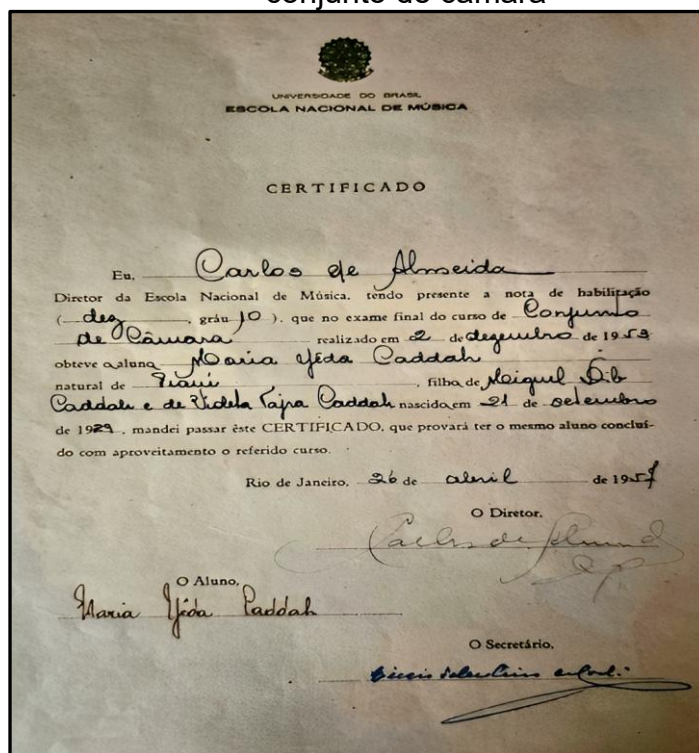 conjunto de câmara
UNIVERSIDADE DO BRASIL
ESCOLA NACIONAL DE MÚSICA
CERTIFICADO
Eu, Carlos de Almeida
Diretor da Escola Nacional de Música, tendo presente a nota de habilitação
( dez , gráu 10 ), que no exame final do curso de Conjunto
de Câmara realizado em 2 de dezembro de 195
obteve o aluna Maria Yêda Caddah
natural de Piauí , filha de Miguel Dib
Caddah e de Videla Tajra Caddah nascida em 21 de setembro
de 1929, mandei passar êste CERTIFICADO, que provará ter o mesmo aluno concluí-
do com aproveitamento o referido curso.
Rio de Janeiro, 26 de abril de 195
O Diretor,
Carlos de Almeida
O Aluno,
Maria Yêda Caddah
O Secretário,